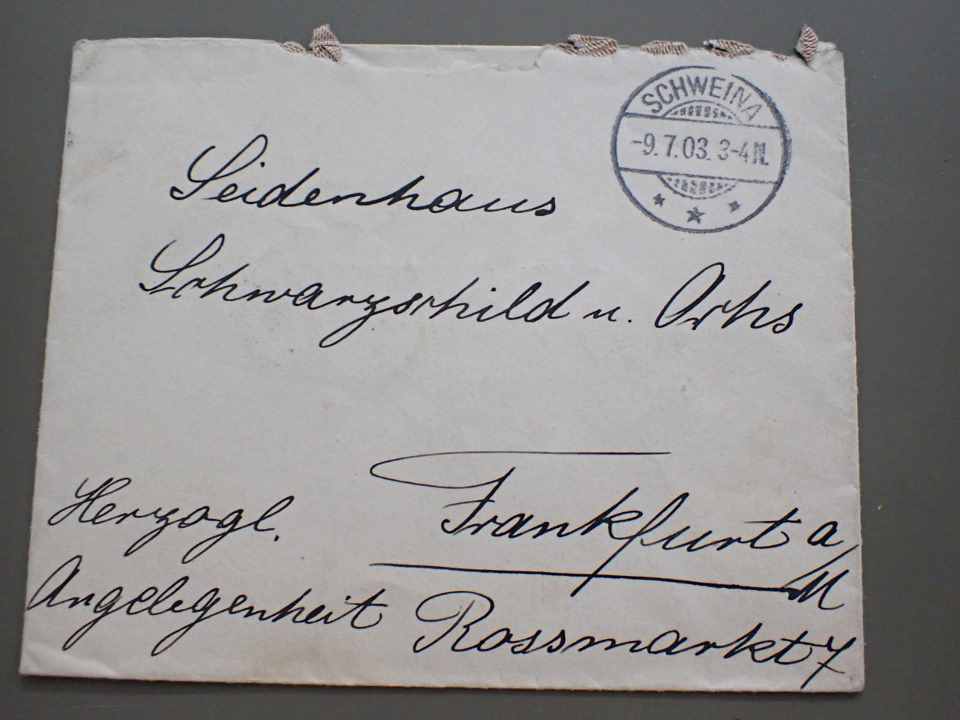 SCHWEINA
-9.7.03. 3-4 N.
Seidenhaus
Schwarzschild u. Ochs
Frankfurt a/M
Rossmarkt 7
Herzogl.
Angelegenheit